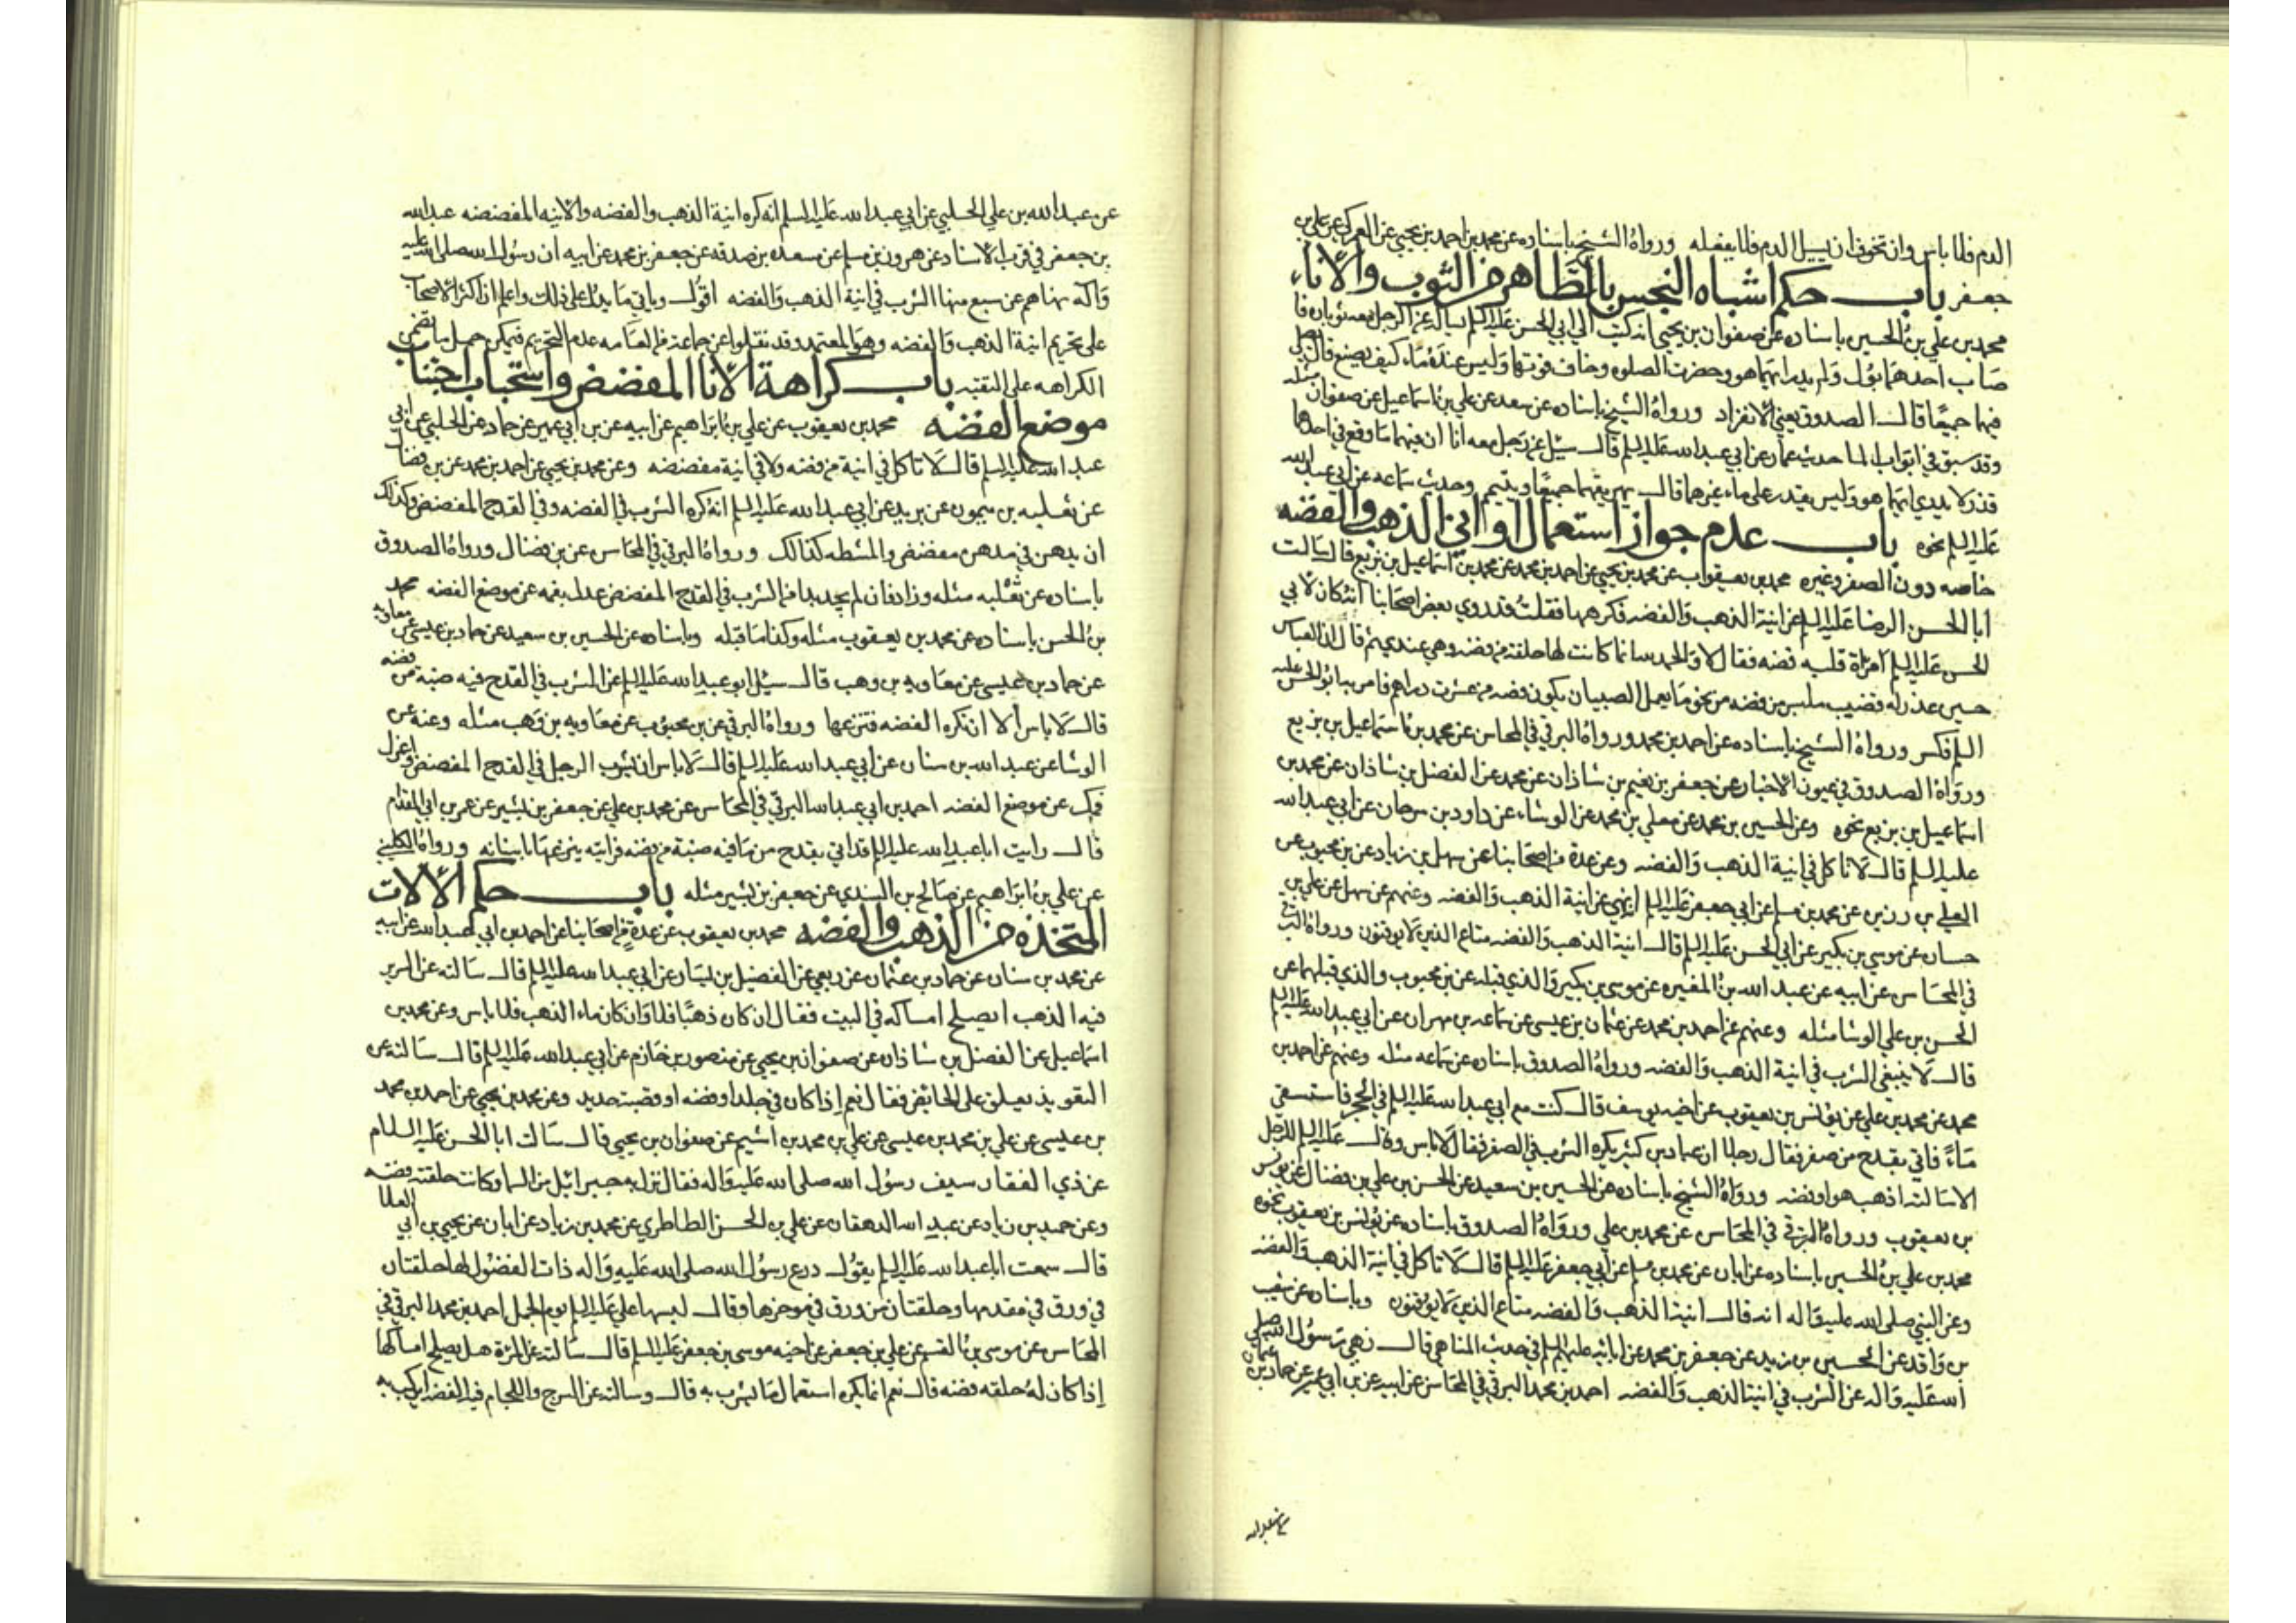 الدم فلا باس وان تخوف ان يسيل الدم فلا يفعله ورواه الشيخ باسناده عن محمد بن احمد بن يحيى عن العمركي عن علي بن
جعفر باب حكم اشباه النجس بالطاهر من الثوب والاناء
محمد بن علي بن الحسين باسناده عن صفوان بن يحيى انه كتب الى ابي الحسن عليه السلم يساله عن الرجل معه ثوبان فا
صاب احدهما بول ولم يدر ايهما هو وحضرت الصلوه وخاف فوتها وليس عنده ماء كيف يصنع قال يصلي
فيهما جميعًا قال الصدوق يعني الانفراد ورواه الشيخ باسناده عن سعد عن علي بن اسماعيل عن صفوان مثله
وقد سبق في ابواب الما حديث عمار عن ابي عبد الله عليه السلم قال سئل عن رجل معه انا ان فيهما ما وقع في احدهما
قذر لا يدري ايهما هو وليس يقدر على ماء غيرهما قال يهريقهما جميعًا ويتيمم وحديث سماعه عن ابي عبد الله
عليه السلم نحوه باب عدم جواز استعمال اواني الذهب والفضه
خاصه دون الصفر وغيره محمد بن يعقوب عن محمد بن يحيى عن احمد بن محمد عن محمد بن اسماعيل بن بزيع قال سالت
ابا الحسن الرضا عليه السلم عن انية الذهب والفضه فكرهها فقلت قد روي بعض اصحابنا انه كان لابي
الحسن عليه السلم امراة قلبه فضه فقال لا والحمد لله انما كانت لها حلقة من فضه وهي عندي ثم قال ان العباس
حسين عذر له قضيب ملبس من فضه من نحو ما يعمل الصبيان يكون فضه من عشرت دراهم فامر به ابو الحسن عليه
السلم فكسر ورواه الشيخ باسناده عن احمد بن محمد ورواه البرقي في المحاسن عن محمد بن اسماعيل بن بزيع
ورواه الصدوق في عيون الاخبار عن جعفر بن نعيم بن شاذان عن محمد عن الفضل بن شاذان عن محمد بن
اسماعيل بن بزيع نحوه وعن الحسين بن محمد عن معلي بن محمد عن الوشاء عن داود بن سرحان عن ابي عبد الله
عليه السلم قال لا تاكل في انية الذهب والفضه وعن عدة من اصحابنا عن سهل بن زياد عن بن محبوب عن
العلي بن رزين عن محمد بن مسلم عن ابي جعفر عليه السلم انه نهي عن انية الذهب والفضه وعنهم عن سهل عن علي بن
حسان عن موسى بن بكير عن ابي الحسن عليه السلم قال انية الذهب والفضه متاع الذين لا يوقنون ورواه البرقي
في المحاسن عن ابيه عن عبد الله بن المغيره عن موسى بن بكير والذي قبله عن بن محبوب والذي قبلهما عن
الحسن بن علي الوشا مثله وعنهم عن احمد بن محمد عن عثمان بن عيسى عن سماعه بن مهران عن ابي عبد الله عليه السلم
قال لا ينبغي الشرب في انية الذهب والفضه ورواه الصدوق باسناده عن سماعه مثله وعنهم عن احمد بن
محمد عن محمد بن علي عن يونس بن يعقوب عن اخيه يوسف قال كنت مع ابي عبد الله عليه السلم في الحجر فاستسقى
ماءً فاتي بقدح من صفر فقال رجل ان عباد بن كثير يكره الشرب في الصفر فقال لا باس وقال عليه السلم للرجل
الا سالته اذهب هو او فضه ورواه الشيخ باسناده عن الحسين بن سعيد عن الحسن بن علي بن فضال عن يونس
بن يعقوب ورواه البرقي في المحاسن عن محمد بن علي ورواه الصدوق باسناده عن يونس بن يعقوب نحوه
محمد بن علي بن الحسين باسناده عن ابان عن محمد بن مسلم عن ابي جعفر عليه السلم قال لا تاكل في انية الذهب والفضه
وعن النبي صلى الله عليه واله انه قال انية الذهب والفضه متاع الذين لا يوقنون وباسناده عن شعيب
بن واقد عن الحسين بن زيد عن جعفر بن محمد عن ابائه عليهم السلم في حديث المناهي قال نهى رسول الله صلى
الله عليه واله عن الشرب في انية الذهب والفضه احمد بن محمد البرقي في المحاسن عن ابيه عن بن ابي عمير عن حماد بن عثمان
عن عبد الله
عن عبد الله بن علي الحلبي عن ابي عبد الله عليه السلم انه كره انية الذهب والفضه والانيه المفضضه عبد الله
بن جعفر في قرب الاسناد عن هرون بن مسلم عن مسعده بن صدقه عن جعفر بن محمد عن ابيه ان رسول الله صلى الله عليه
واله نهاهم عن سبع منها الشرب في انية الذهب والفضه اقول وياتي ما يدل على ذلك واعلم ان اكثر الاصحاب
على تحريم انية الذهب والفضه وهو المعتمد وقد نقلوا عن جماعة من العامه عدم التحريم فيمكن حمل ما تضمن
الكراهه على التقيه باب كراهة الانا المفضض واستحباب اجتناب
موضع الفضه محمد بن يعقوب عن علي بن ابراهيم عن ابيه عن بن ابي عمير عن حماد عن الحلبي عن ابي
عبد الله عليه السلم قال لا تاكل في انية من فضه ولا في انية مفضضه وعن محمد بن يحيى عن احمد بن محمد عن بن فضال
عن ثعلبه بن ميمون عن بريد عن ابي عبد الله عليه السلم انه كره الشرب في الفضه وفي القدح المفضض وكذلك
ان يدهن في مدهن مفضض والمشطه كذالك ورواه البرقي في المحاسن عن بن فضال ورواه الصدوق
باسناده عن ثعلبه مثله وزاد فان لم يجد بدا من الشرب في القدح المفضض عدل بفمه عن موضع الفضه محمد
بن الحسن باسناده عن محمد بن يعقوب مثله وكذا ما قبله وباسناده عن الحسين بن سعيد عن حماد بن عيسى عن معاويه
عن حماد بن عيسى عن معاويه بن وهب قال سئل ابو عبد الله عليه السلم عن الشرب في القدح فيه ضبة من فضه
قال لا باس الا ان تكره الفضه فتنزعها ورواه البرقي عن بن محبوب عن معاويه بن وهب مثله وعنه عن
الوشا عن عبد الله بن سنان عن ابي عبد الله عليه السلم قال لا باس ان يشرب الرجل في القدح المفضض واعزل
فمك عن موضع الفضه احمد بن ابي عبد الله البرقي في المحاسن عن محمد بن علي عن جعفر بن بشير عن عمر بن ابي المقدام
قال رايت ابا عبد الله عليه السلم قد اتي بقدح من ما فيه ضبة من فضه فرايته ينزعها باسنانه ورواه الكليني
عن علي بن ابراهيم عن صالح بن السندي عن جعفر بن بشير مثله باب حكم الالات
المتخذه من الذهب والفضه محمد بن يعقوب عن عدة من اصحابنا عن احمد بن ابي عبد الله عن ابيه
عن محمد بن سنان عن حماد بن عثمان عن ربعي عن الفضيل بن يسار عن ابي عبد الله عليه السلم قال سالته عن السرير
فيه الذهب ايصلح امساكه في البيت فقال ان كان ذهبًا فلا وان كان ماء الذهب فلا باس وعن محمد بن
اسماعيل عن الفضل بن شاذان عن صفوان بن يحيى عن منصور بن حازم عن ابي عبد الله عليه السلم قال سالته عن
التعويذ يعلق على الحائض فقال نعم إذا كان في جلد او فضه او قصبة حديد وعن محمد بن يحيى عن احمد بن محمد
بن عيسى عن علي بن محمد بن عيسى عن علي بن محمد بن اشيم عن صفوان بن يحيى قال سالت ابا الحسن عليه السلام
عن ذي الفقار سيف رسول الله صلى الله عليه واله فقال نزل به جبرائيل من السما وكانت حلقته فضه
وعن حميد بن زياد عن عبيد الله الدهقان عن علي بن الحسن الطاطري عن محمد بن زياد عن ابان عن يحيى بن ابي العلا
قال سمعت ابا عبد الله عليه السلم يقول درع رسول الله صلى الله عليه واله ذات الفضول لها حلقتان
في ورق في مقدمها وحلقتان من ورق في موخرها وقال لبسها علي عليه السلم يوم الجمل احمد بن محمد البرقي في
المحاسن عن موسى بن القسم عن علي بن جعفر عن اخيه موسى بن جعفر عليه السلم قال سالته عن المرة هل يصلح امساكها
إذا كان له حلقه فضه قال نعم انما يكره استعمال ما يشرب به قال وسالته عن السرج واللجام فيه الفضه ايركب به